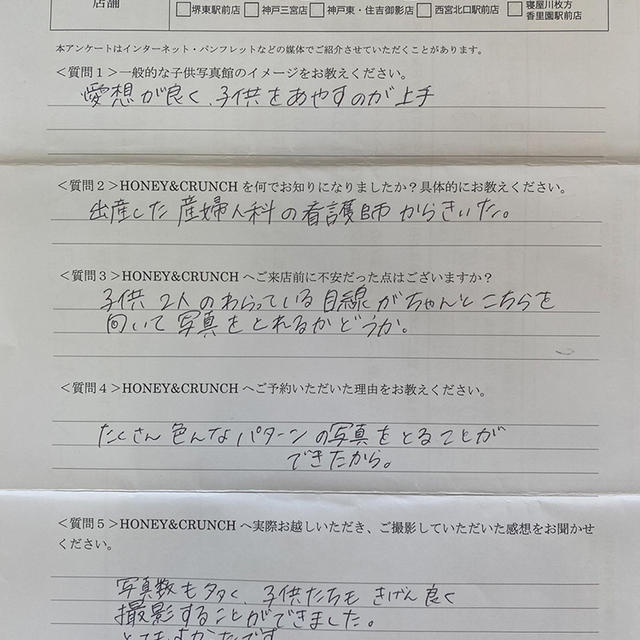 店舗
堺東駅前店 神戸三宮店 神戸東・住吉御影店 西宮北口駅前店 寝屋川枚方香里園駅前店
本アンケートはインターネット・パンフレットなどの媒体でご紹介させていただくことがあります。
＜質問１＞一般的な子供写真館のイメージをお教えください。
愛想が良く、子供をあやすのが上手
＜質問２＞HONEY&CRUNCH を何でお知りになりましたか？具体的にお教えください。
出産した産婦人科の看護師からきいた。
＜質問３＞HONEY&CRUNCH へご来店前に不安だった点はございますか？
子供2人のわらっている目線がちゃんとこちらを
向いて写真をとれるかどうか。
＜質問４＞HONEY&CRUNCH へご予約いただいた理由をお教えください。
たくさん色んなパターンの写真をとることが
できたから。
＜質問５＞HONEY&CRUNCH へ実際お越しいただき、ご撮影していただいた感想をお聞かせ
ください。
写真数も多く、子供たちもきげん良く
撮影することができました。
とても